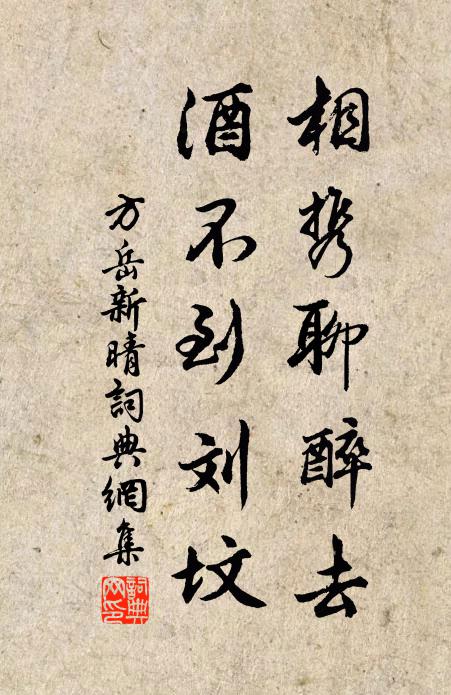 相携聊醉去
酒不到刘坟
方岳新晴詞典網集
詞典網印